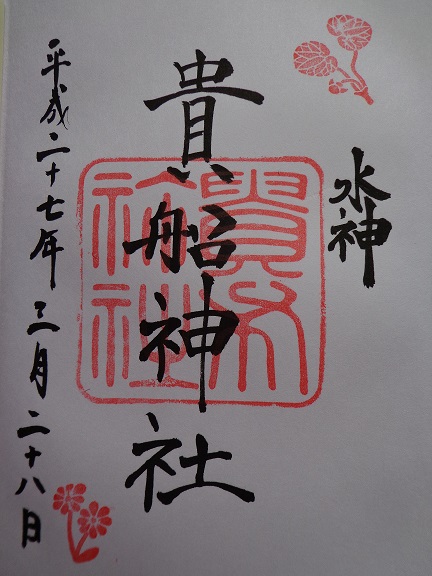 水神
貴船神社
平成二十七年三月二十八日